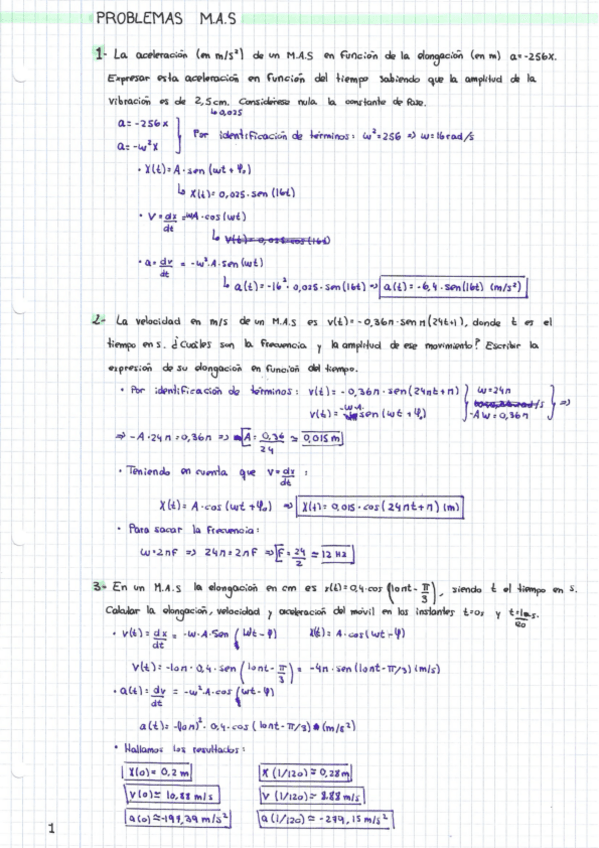 PROBLEMAS M.A.S
1- La aceleración (en m/s²) de un M.A.S en función de la elongación (en m) a=-256x.
Expresar esta aceleración en función del tiempo sabiendo que la amplitud de la
vibración es de 2,5cm. Considérese nula la constante de fase.
↳0,025
a=-256x
a=-w²x
Por identificación de términos: w²=256 => w=16rad/s
· X(t)=A·sen(wt+φ₀)
↳ X(t)=0,025·sen(16t)
· V=dx/dt=wA·cos(wt)
↳ V(t)=0,025·cos(16t)
· a=dv/dt = -w²·A·sen(wt)
↳ a(t)=-16²·0,025·sen(16t) => a(t)=-6,4·sen(16t) (m/s²)
2- La velocidad en m/s de un M.A.S es v(t)=-0,36π·sen π(24t+1), donde t es el
tiempo en s. ¿Cuáles son la frecuencia y la amplitud de ese movimiento? Escribir la
expresión de su elongación en función del tiempo.
· Por identificación de términos: v(t)=-0,36π·sen(24πt+π) w=24π
v(t)=-w·A·sen(wt+φ₀) -Aw=0,36π =>
=> -A·24π=0,36π => A=0,36/24 ≃ 0,015m
· Teniendo en cuenta que v=dx/dt:
X(t)=A·cos(wt+φ₀) => X(t)=0,015·cos(24πt+π)(m)
· Para sacar la frecuencia:
w=2πF => 24π=2πF => F=24/2 ≃ 12 Hz
3- En un M.A.S la elongación en cm es x(t)=0,4·cos(10πt-π/3), siendo t el tiempo en s.
Calcular la elongación, velocidad y aceleración del móvil en los instantes t=0s y t=1/120s.
· v(t)=dx/dt=-w·A·sen(wt-φ) X(t)=A·cos(wt-φ)
v(t)=-10π·0,4·sen(10πt-π/3)=-4π·sen(10πt-π/3)(m/s)
· a(t)=dv/dt=-w²A·cos(wt-φ)
a(t)=-(10π)²·0,4·cos(10πt-π/3)(m/s²)
· Hallamos los resultados:
X(0)=0,2m X(1/120)≃0,28m
v(0)≃10,88m/s v(1/120)≃8.88m/s
a(0)≃-197,39m/s² a(1/120)≃-279,15m/s²
1